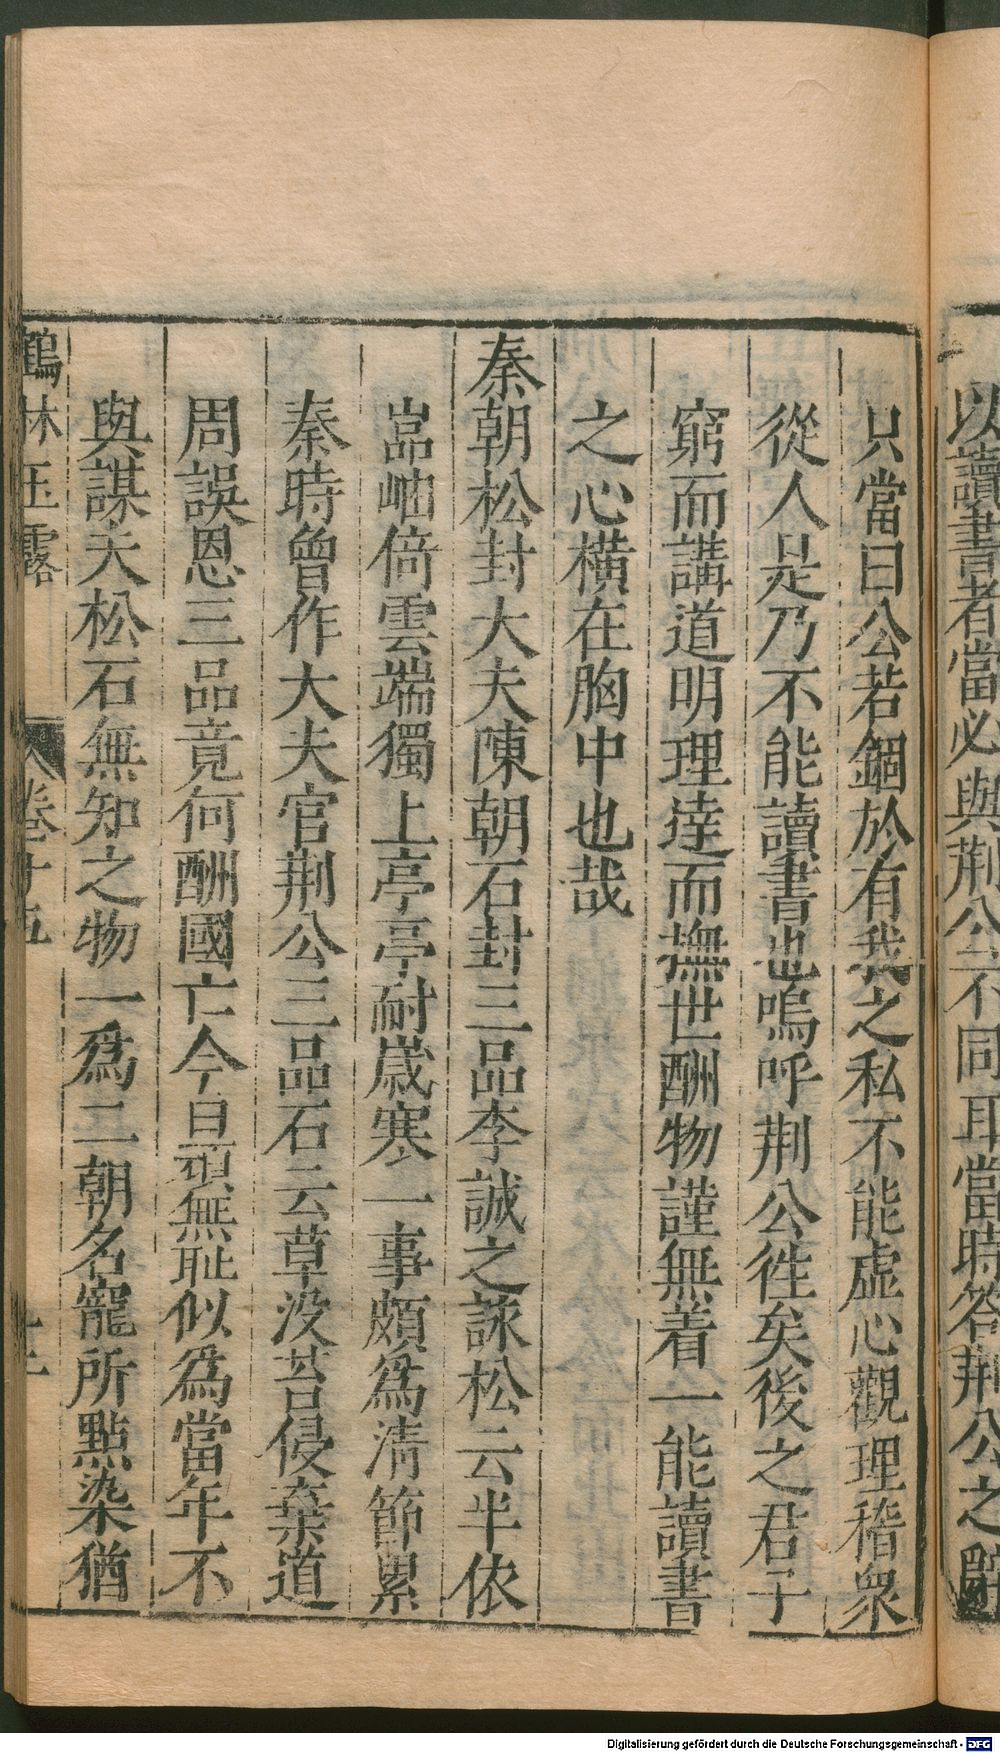 以讀書者當必與荆公不同耳當時答荆公之辭
只當曰公若錮於有我之私不能虛心觀理稽衆
從人是乃不能讀書也嗚呼荆公徃矣後之君子
窮而講道明理逹而撫世酬物謹無着一能讀書
之心橫在胸中也哉
秦朝松封大夫陳朝石封三品李誠之詠松云半依
嵓岫倚雲端獨上亭亭耐歲寒一事頗爲清節累
秦時曾作大夫官荆公三品石云草没苔侵棄道
周誤恩三品竟何酬國亡今日頑無耻似爲當年不
與謀夫松石無知之物一爲二朝名寵所點染猶
鶴林玉露 卷十五
Digitalisierung gefördert durch die Deutsche Forschungsgemeinschaft - DFG